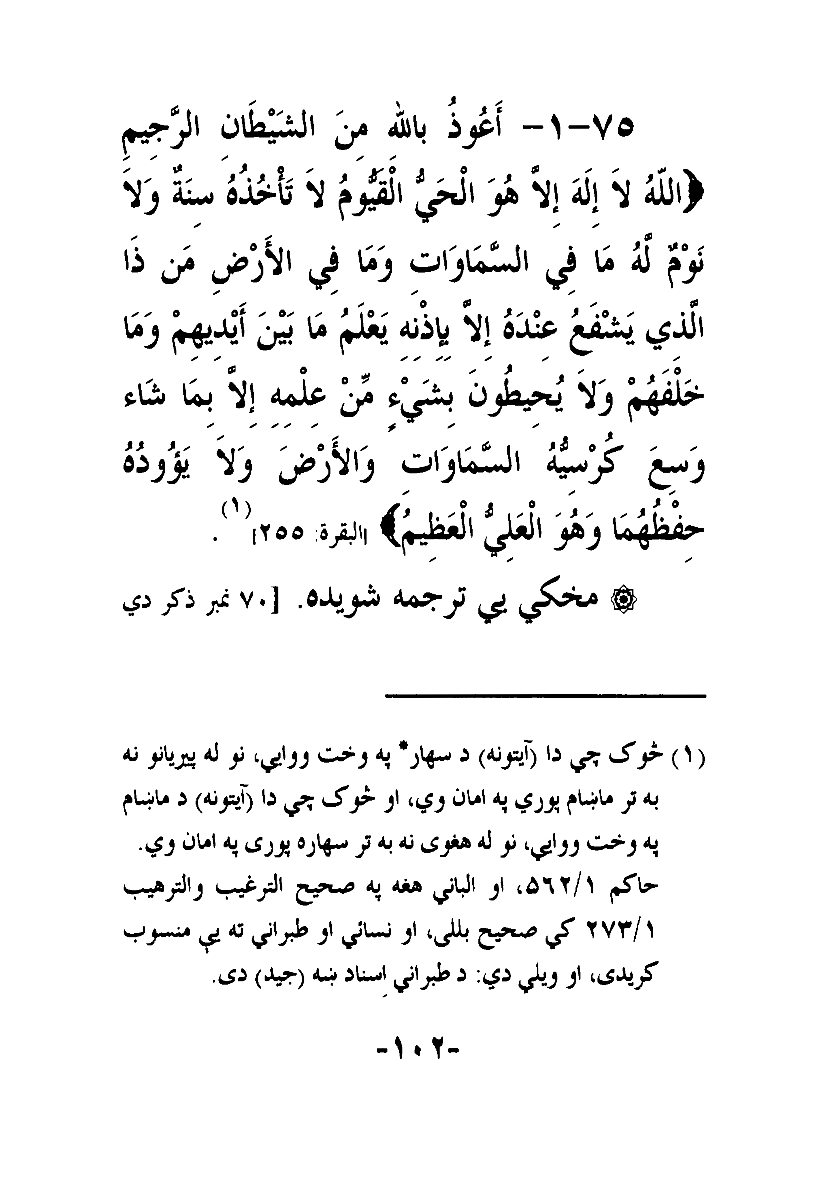 ٧٥-١- أَعُوذُ بالله مِنَ الشَيْطَانِ الرَّجِيمِ
﴿اللّهُ لاَ إِلَهَ إِلاَّ هُوَ الْحَيُّ الْقَيُّومُ لاَ تَأْخُذُهُ سِنَةٌ وَلاَ
نَوْمٌ لَّهُ مَا فِي السَّمَاوَاتِ وَمَا فِي الأَرْضِ مَن ذَا
الَّذِي يَشْفَعُ عِنْدَهُ إِلاَّ بِإِذْنِهِ يَعْلَمُ مَا بَيْنَ أَيْدِيهِمْ وَمَا
خَلْفَهُمْ وَلاَ يُحِيطُونَ بِشَيْءٍ مِّنْ عِلْمِهِ إِلاَّ بِمَا شَاء
وَسِعَ كُرْسِيُّهُ السَّمَاوَاتِ وَالأَرْضَ وَلاَ يَؤُودُهُ
حِفْظُهُمَا وَهُوَ الْعَلِيُّ الْعَظِيمُ﴾ [البقرة: ٢٥٥](١).
۞ مخكي يې ترجمه شويده. [٧٠ نمبر ذكر دي
(١) څوک چي دا (آيتونه) د سهار* په وخت ووايي، نو له پيريانو نه
به تر ماښام پوري په امان وي، او څوک چي دا (آيتونه) د ماښام
په وخت ووايي، نو له هغوی نه به تر سهاره پوری په امان وي.
حاکم ٥٦٢/١، او الباني هغه په صحيح الترغيب والترهيب
٢٧٣/١ کي صحيح بللی، او نسائي او طبراني ته يې منسوب
کريدی، او ويلي دي: د طبراني إسناد ښه (جيد) دی.
-١٠٢-